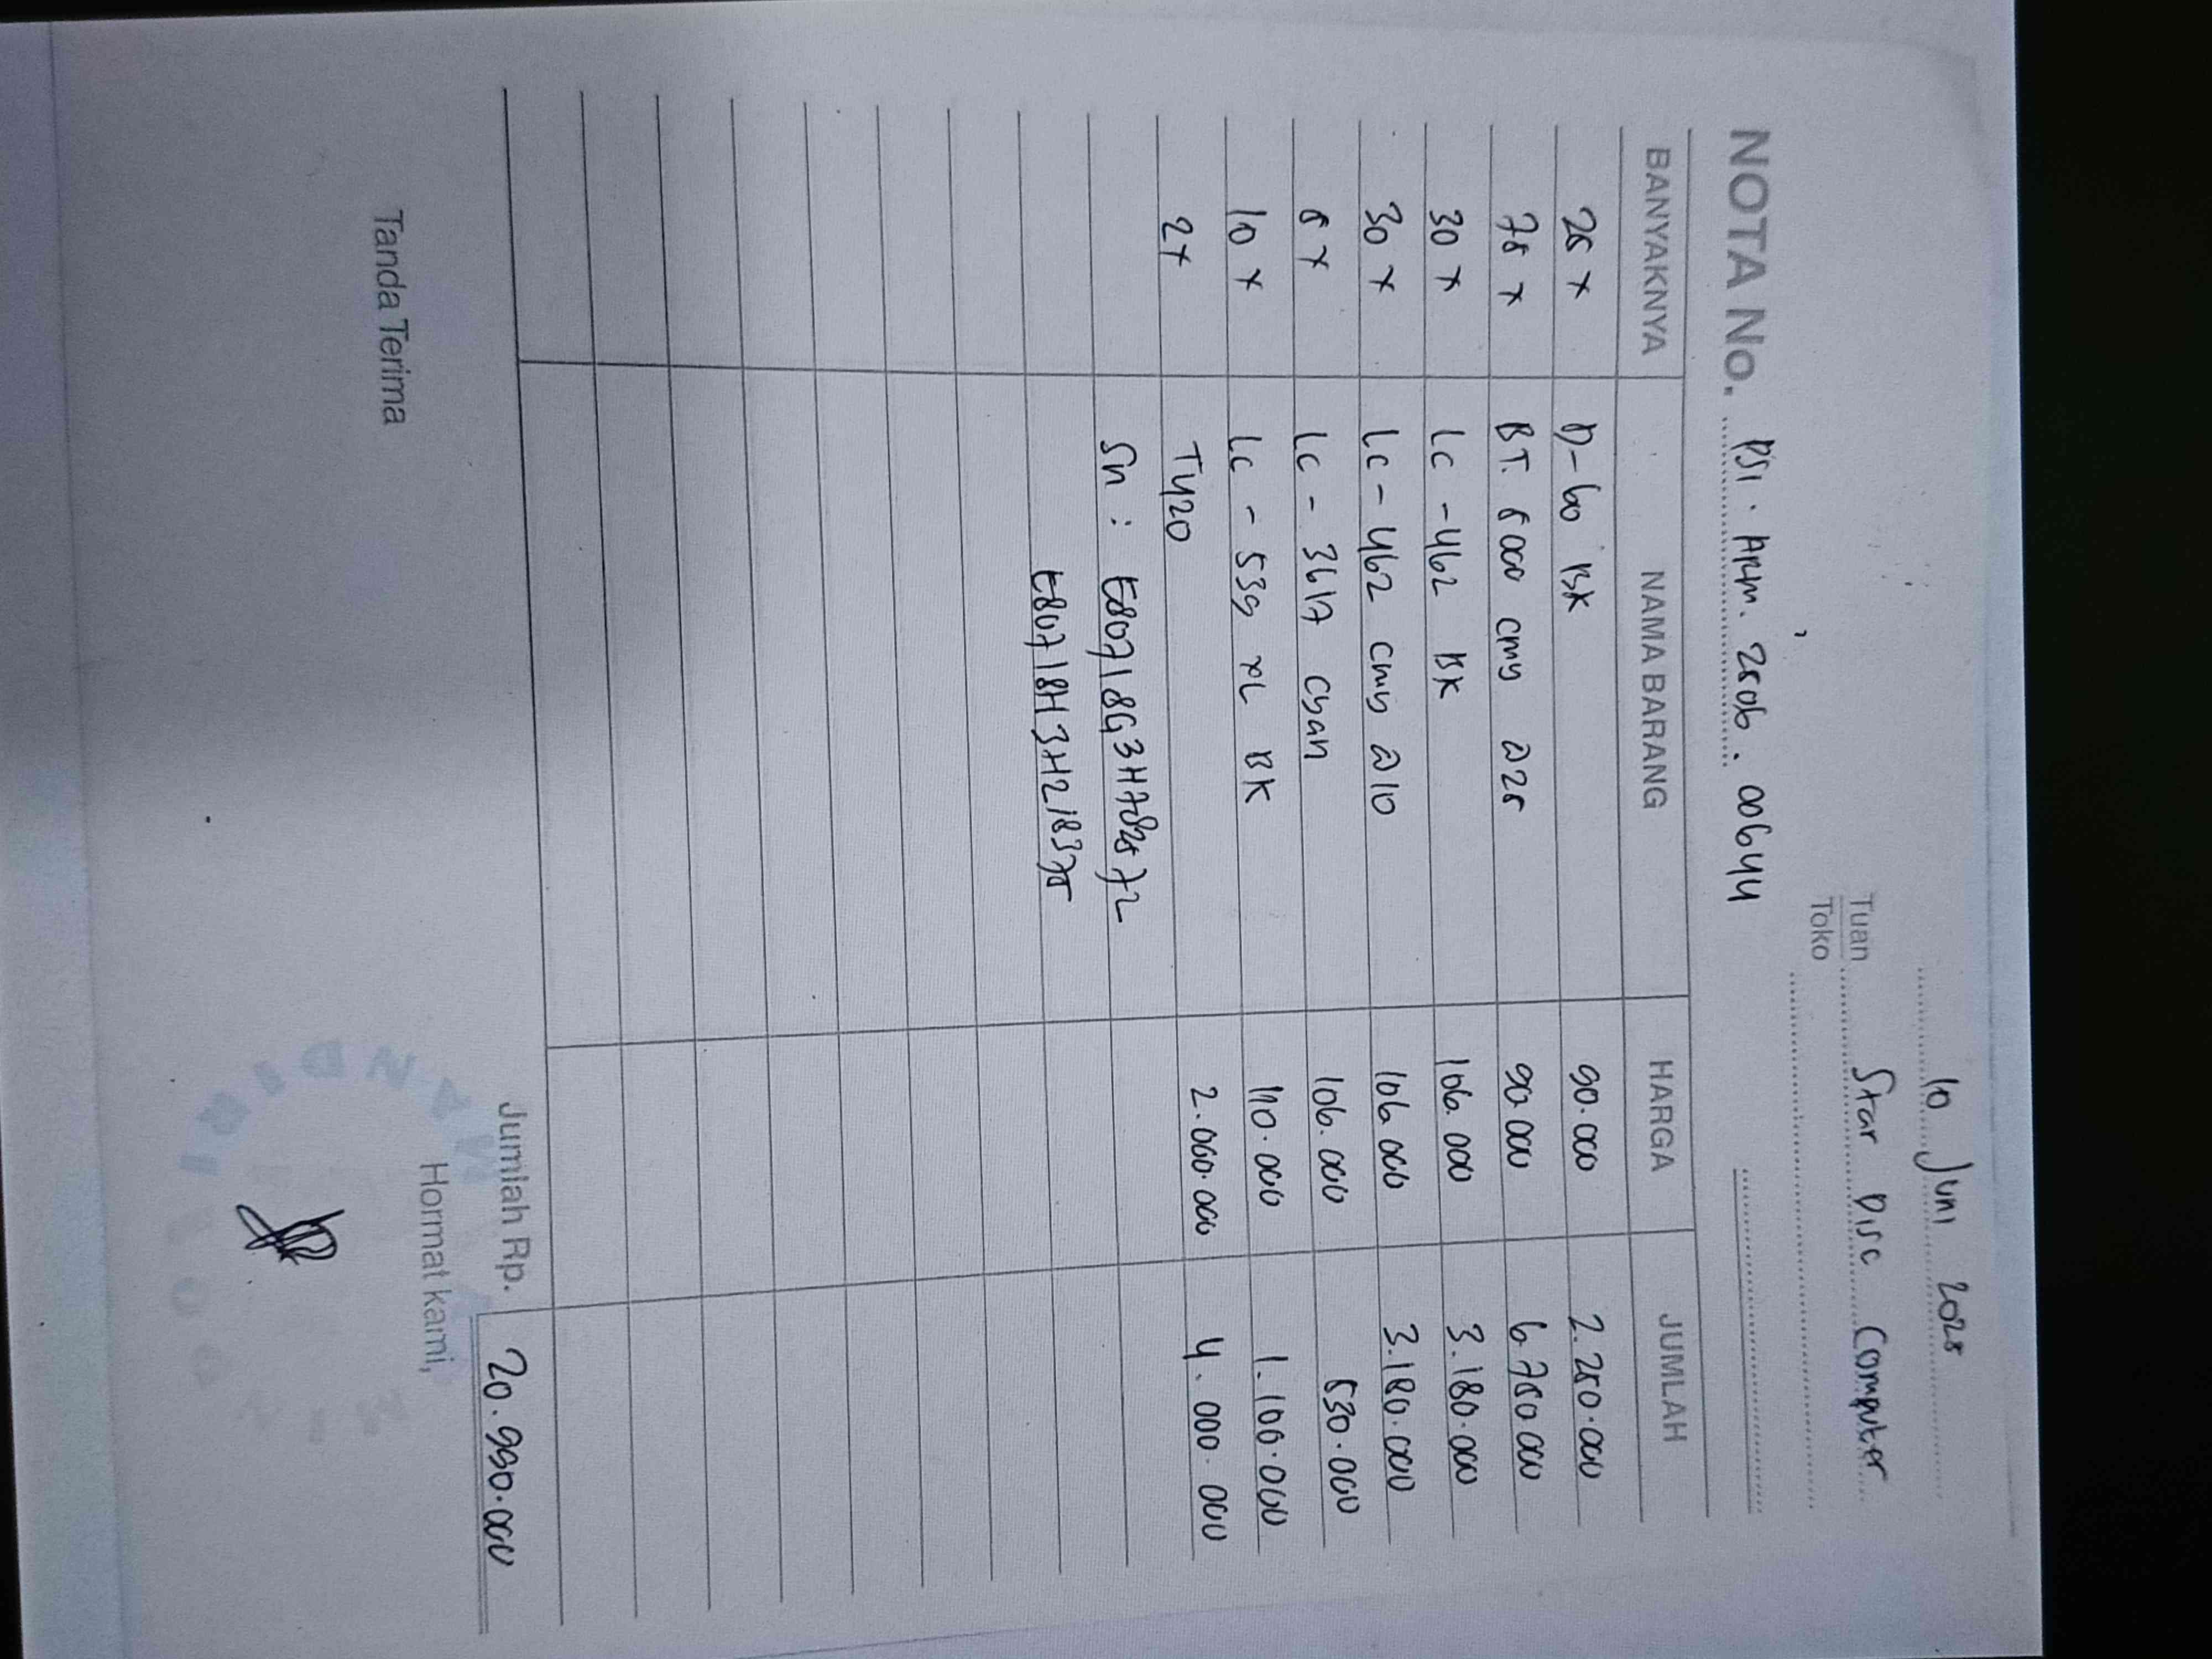 10 Juni 2025
Tuan Star Disc Computer
Toko
NOTA No. PSI. ARM. 2506. 00644
BANYAKNYA NAMA BARANG HARGA JUMLAH
25 x D-60 BK 90.000 2.250.000
75 x BT. 5000 CMY @25 90.000 6.750.000
30 x LC-462 BK 106.000 3.180.000
30 x LC-462 CMY @10 106.000 3.180.000
5 x LC-3617 Cyan 106.000 530.000
10 x LC-539 XL BK 110.000 1.100.000
2x T420 2.000.000 4.000.000
Sn :
E80718H3H218375
Jumlah Rp. 20.990.000
Tanda Terima Hormat kami,